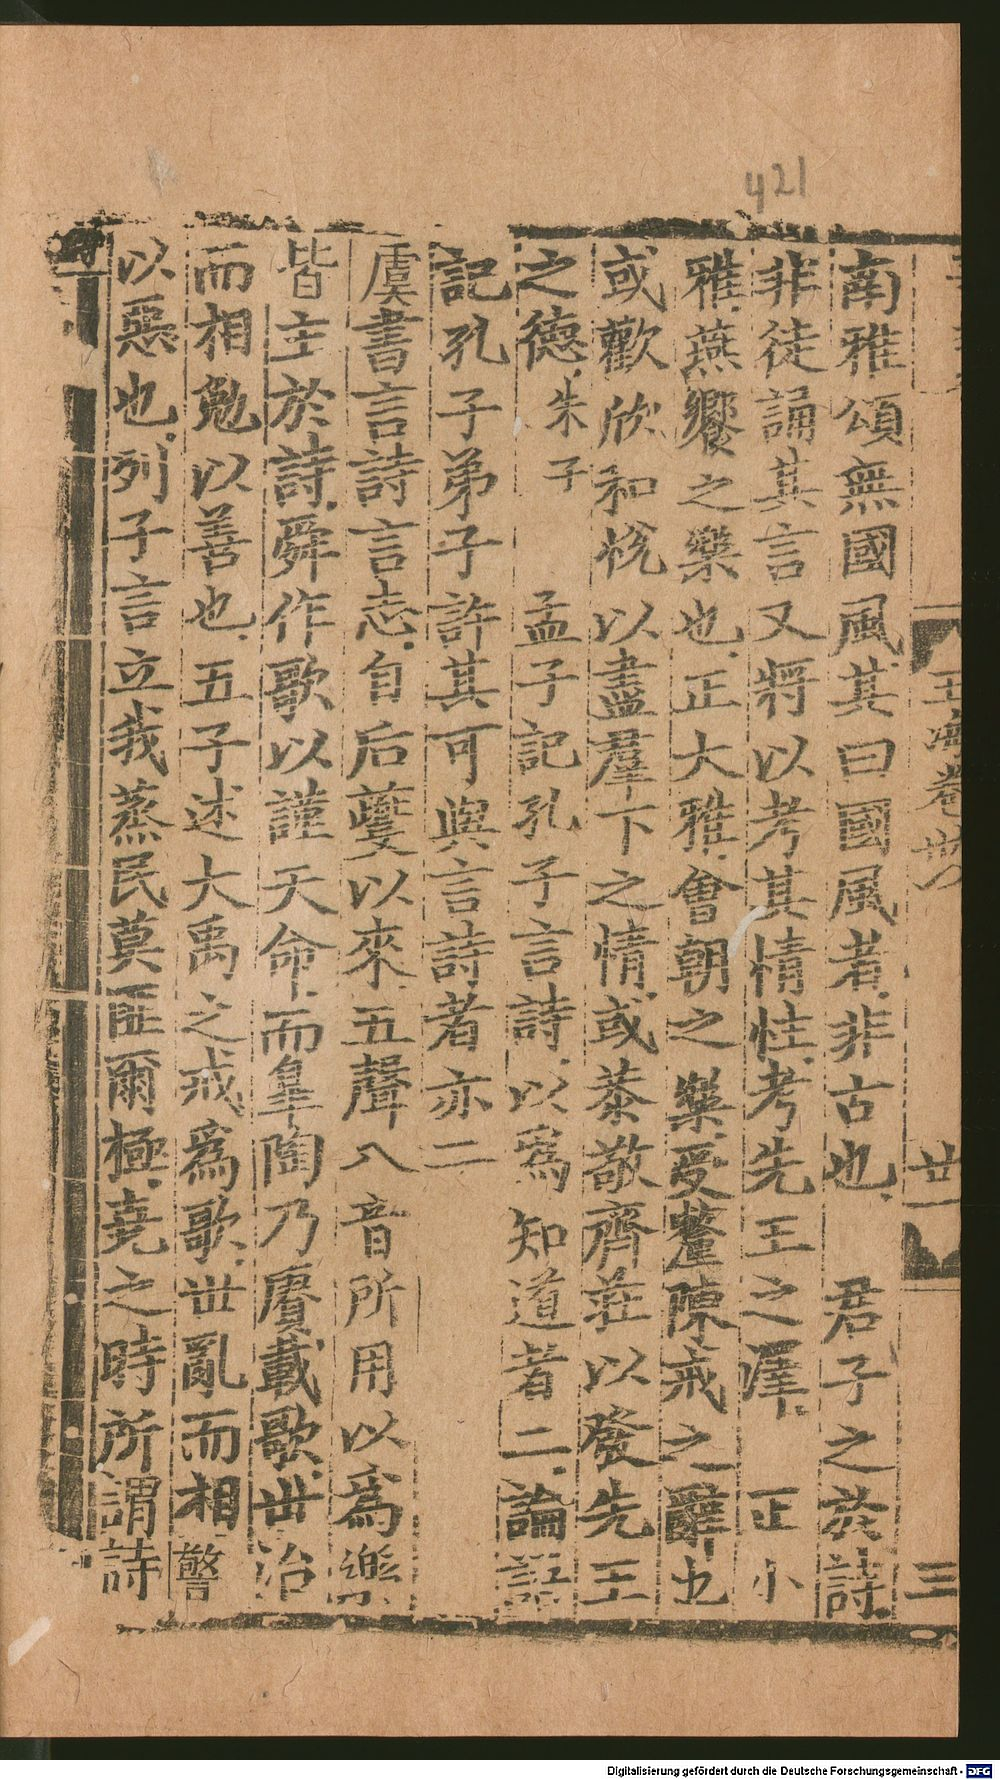 421
南雅頌無國風其曰國風者非古也　君子之於詩
非徒誦其言又將以考其情性考先王之澤　正小
雅燕饗之樂也正大雅會朝之樂受釐陳戒之辭也
或歡欣和悅以盡羣下之情或恭敬齊莊以發先王
之德朱子　孟子記孔子言詩以爲知道者二論語
記孔子弟子許其可與言詩者亦二
虞書言詩言志自后夔以來五聲八音所用以爲樂
皆主於詩舜作歌以謹天命而皐陶乃賡載歌丗治
而相勉以善也五子述大禹之戒爲歌丗亂而相警
以惡也列子言立我蒸民莫匪爾極堯之時所謂詩
玉海卷卅八
廿一
三
Digitalisierung gefördert durch die Deutsche Forschungsgemeinschaft - DFG